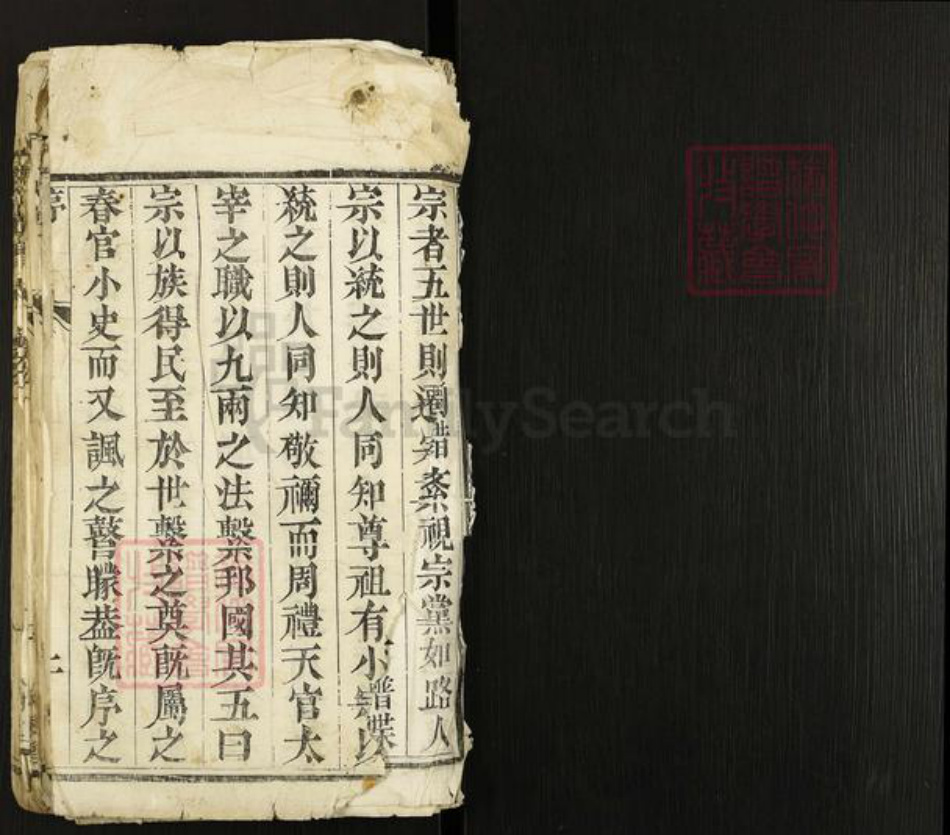 宗者五世則遷錯紊視宗黨如路人
宗以統之則人同知尊祖有小譜牒以
統之則人同知敬禰而周禮天官太
宰之職以九兩之法繫邦國其五曰
宗以族得民至於世繫之奠旣屬之
春官小史而又諷之瞽矇葢旣序之
序
二
FamilySearch